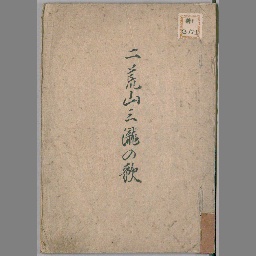 二荒山三瀧の歌